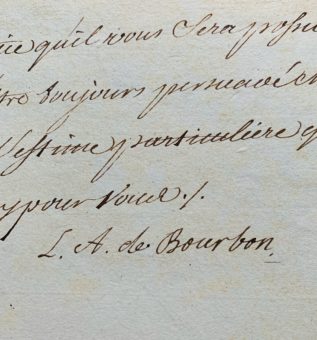 que qu'il vous Sera possi
être toujours persuadé de
l'estime particulière q
y pour vous /.
L. A. de Bourbon